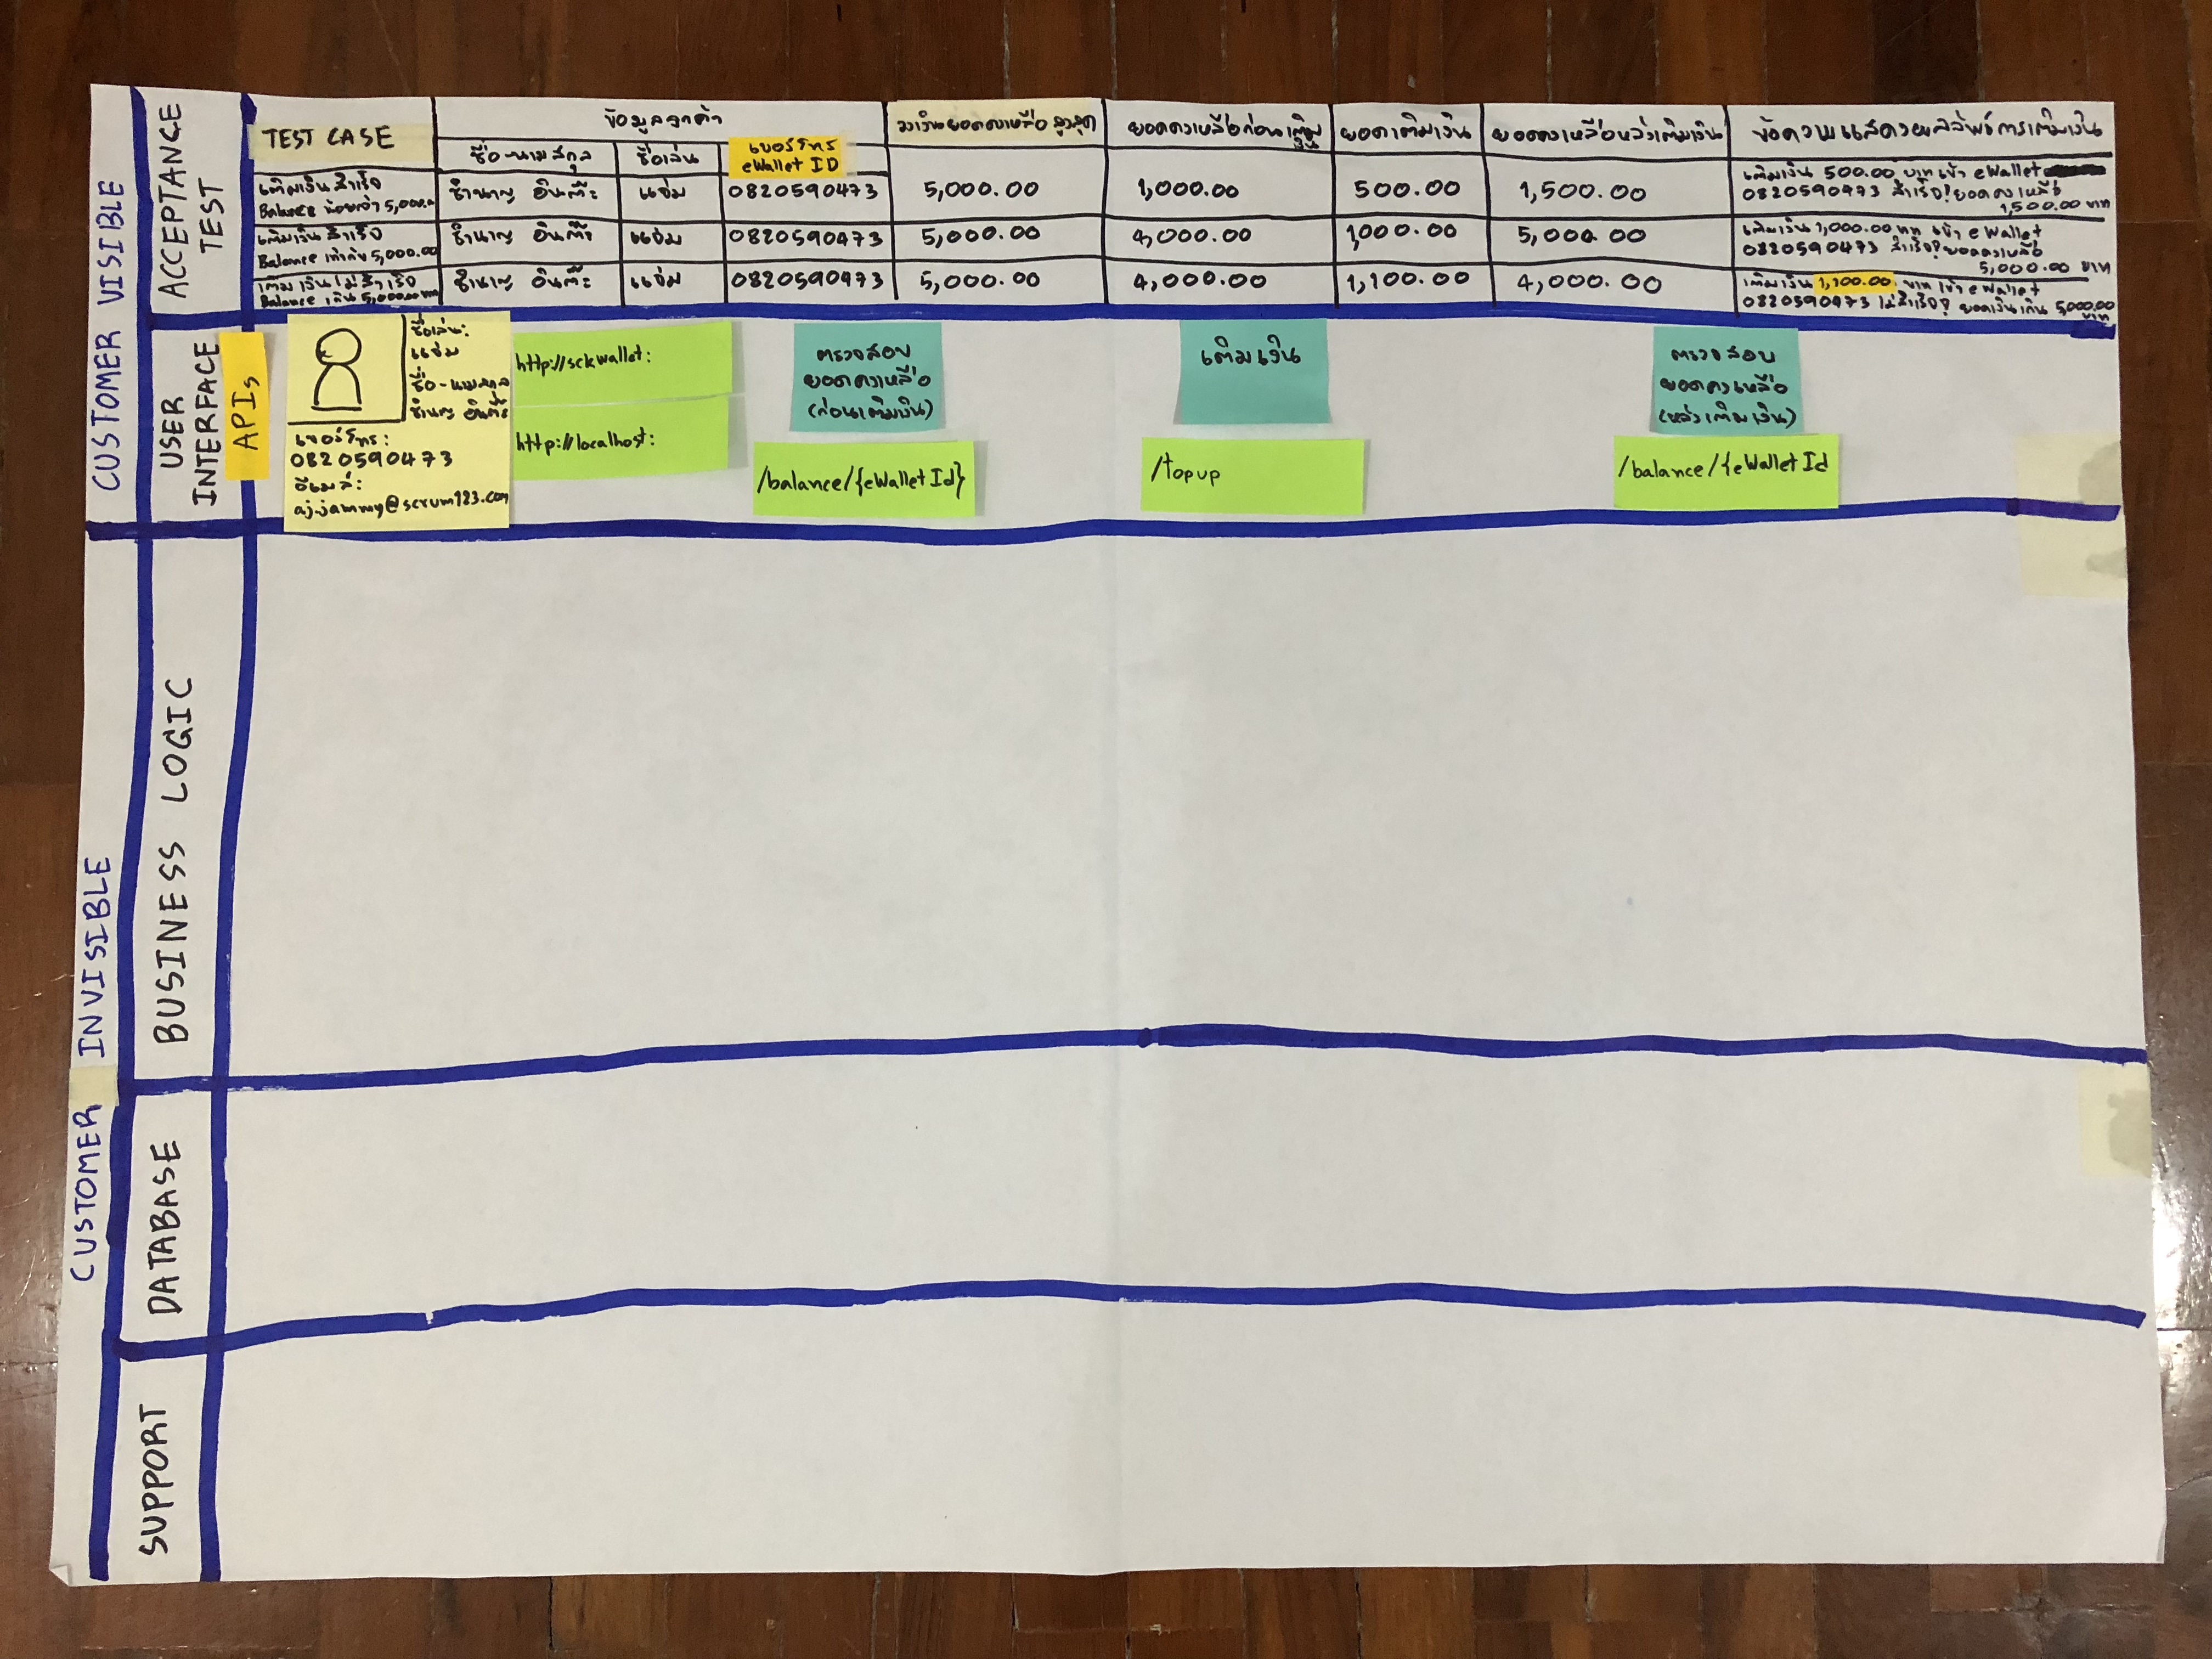 CUSTOMER VISIBLE
ACCEPTANCE
TEST
TEST CASE
ข้อมูลลูกค้า
ชื่อ-นามสกุล
ชื่อเล่น
เบอร์โทร
eWallet ID
วงเงินยอดคงเหลือสูงสุด
ยอดคงเหลือก่อนเติมเงิน
ยอดเติมเงิน
ยอดคงเหลือหลังเติมเงิน
ข้อความแสดงผลลัพธ์การเติมเงิน
เติมเงินสำเร็จ
Balance น้อยกว่า 5,000.00
ชำนาญ อินต๊ะ
แจ่ม
0820590473
5,000.00
1,000.00
500.00
1,500.00
เติมเงิน 500.00 บาท เข้า eWallet
0820590473 สำเร็จ! ยอดคงเหลือ
1,500.00 บาท
เติมเงินสำเร็จ
Balance เท่ากับ 5,000.00
ชำนาญ อินต๊ะ
แจ่ม
0820590473
5,000.00
4,000.00
1,000.00
5,000.00
เติมเงิน 1,000.00 บาท เข้า eWallet
0820590473 สำเร็จ! ยอดคงเหลือ
5,000.00 บาท
เติมเงินไม่สำเร็จ
Balance เกิน 5,000.00 บาท
ชำนาญ อินต๊ะ
แจ่ม
0820590473
5,000.00
4,000.00
1,100.00
4,000.00
เติมเงิน 1,100.00 บาท เข้า eWallet
0820590473 ไม่สำเร็จ! ยอดเงินเกิน 5,000.00
บาท
USER
INTERFACE
APIs
ชื่อเล่น:
แจ่ม
ชื่อ-นามสกุล
ชำนาญ อินต๊ะ
เบอร์โทร:
0820590473
อีเมล์:
aj.jammy@scrum123.com
http://sckwallet:
http://localhost:
ตรวจสอบ
ยอดคงเหลือ
(ก่อนเติมเงิน)
/balance/{eWalletId}
เติมเงิน
/topup
ตรวจสอบ
ยอดคงเหลือ
(หลังเติมเงิน)
/balance/{eWalletId
CUSTOMER INVISIBLE
BUSINESS LOGIC
DATABASE
SUPPORT